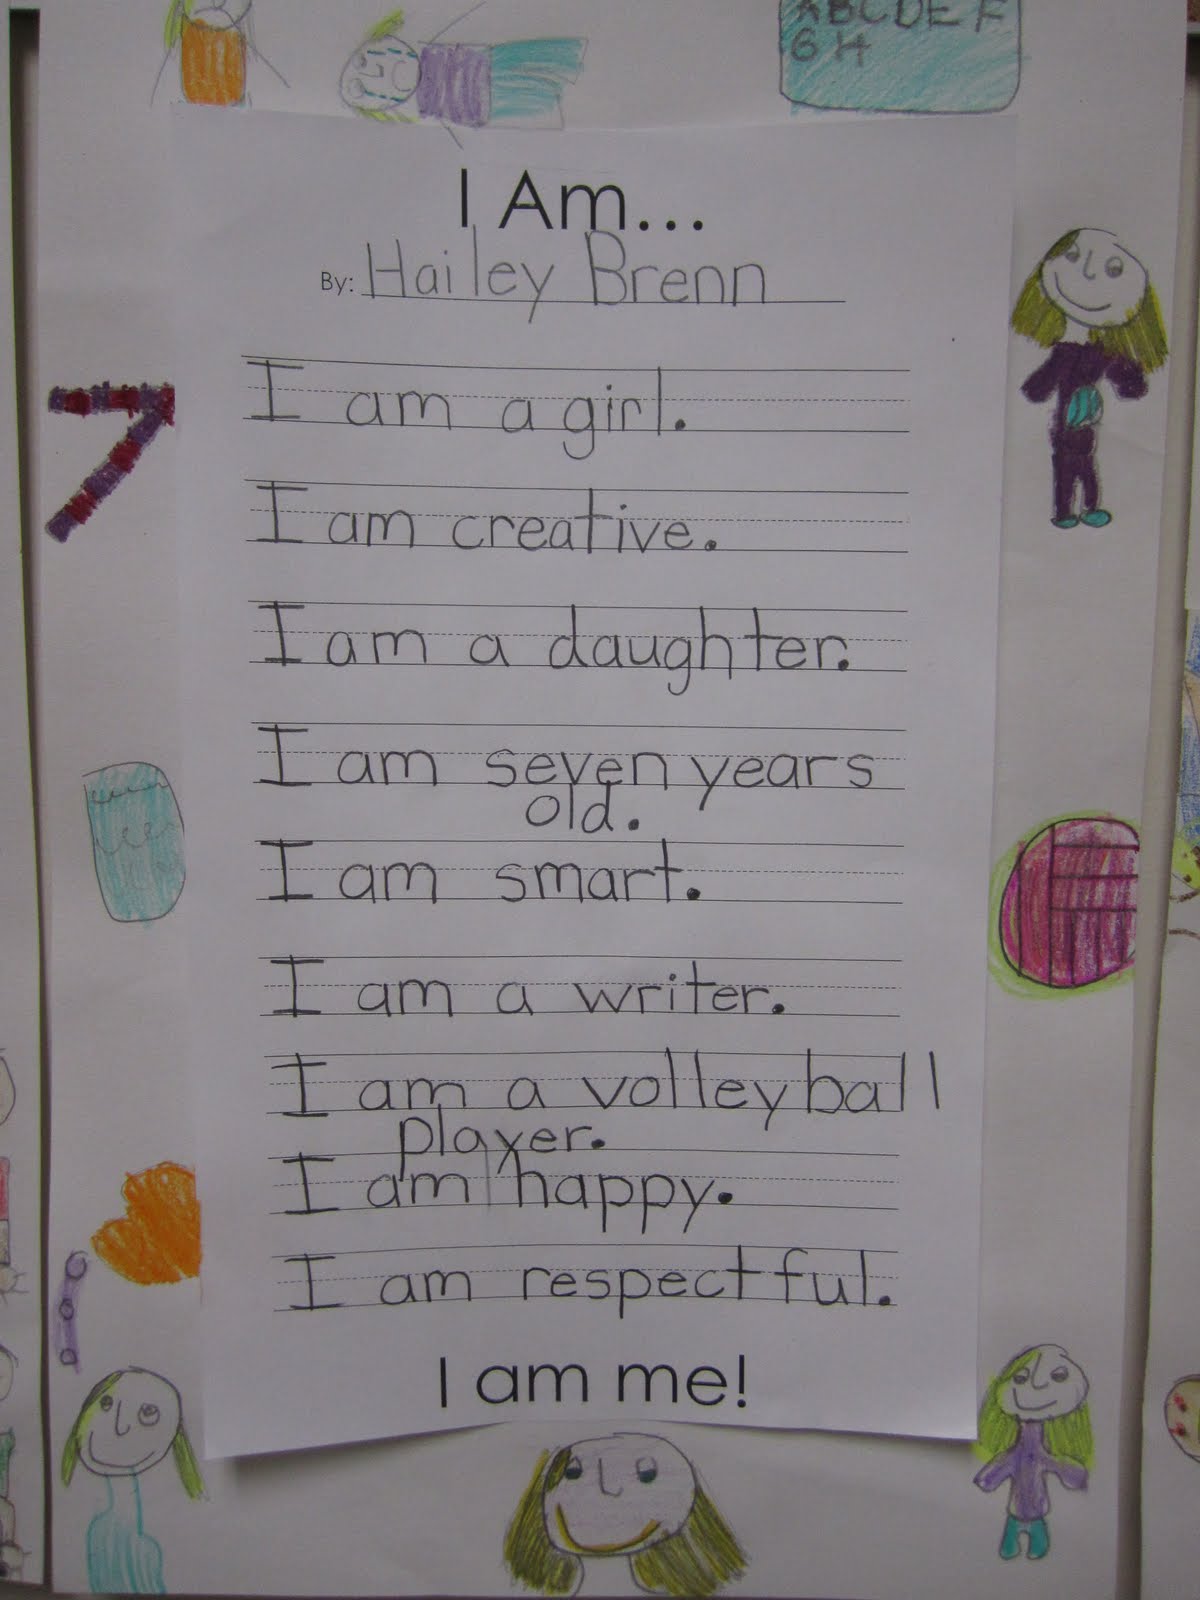 ABCDEF
GH
I Am...
By: Hailey Brenn
I am a girl.
I am creative.
I am a daughter.
I am seven years
old.
I am smart.
I am a writer.
I am a volleyball
player.
I am happy.
I am respectful.
I am me!
7